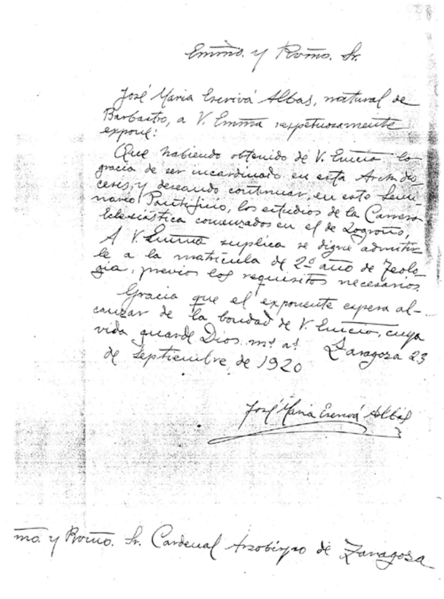 Emmo. y Rvmo. Sr.
José María Escrivá Albás, natural de
Barbastro, a V. Emma respetuosamente
expone:
Que habiendo obtenido de V. Emcia la
gracia de ser incardinado en esta Archidió-
cesis, y deseando continuar, en este Semi-
nario Pontificio, los estudios de la Carrera
eclesiástica comenzados en el de Logroño,
A V. Emma suplica se digne admitir-
le a la matrícula de 2º año de Teolo-
gía, previos los requisitos necesarios.
Gracia que el exponente espera al-
canzar de la bondad de V. Emcia, cuya
vida guarde Dios m.s a.s Zaragoza 23
de Septiembre de 1920
José María Escrivá Albás
mo. y Rvmo. Sr. Cardenal Arzobispo de Zaragoza